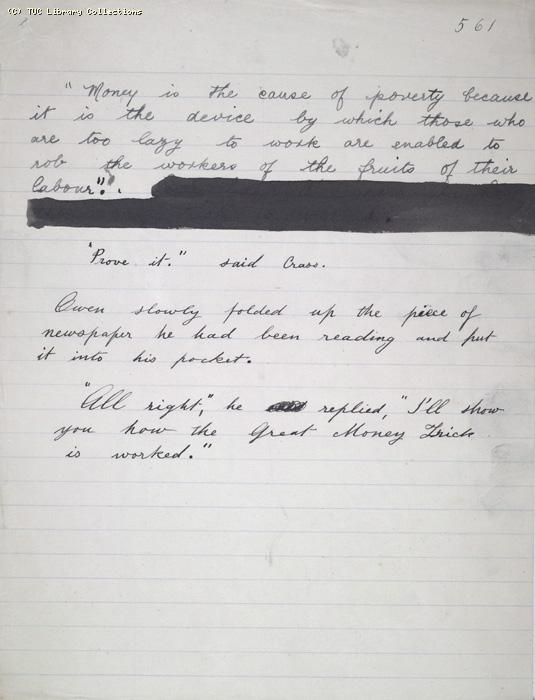 (C) TUC Library Collections
561
"Money is the cause of poverty because
it is the device by which those who
are too lazy to work are enabled to
rob the workers of the fruits of their
labour".
"Prove it." said Crass.
Owen slowly folded up the piece of
newspaper he had been reading and put
it into his pocket.
"All right," he replied, "I'll show
you how the Great Money Trick
is worked."